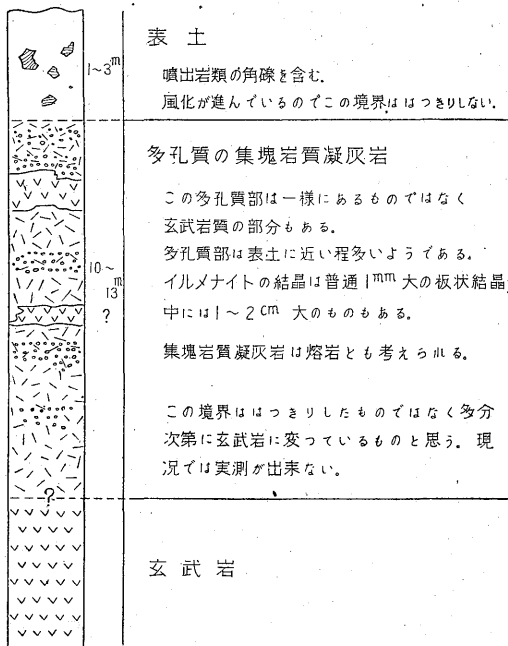 表土
1~3m
噴出岩類の角礫を含む.
風化が進んでいるのでこの境界ははつきりしない.
多孔質の集塊岩質凝灰岩
この多孔質部は一様にあるものではなく
玄武岩質の部分もある.
多孔質部は表土に近い程多いようである.
10~
13m
?
イルメナイトの結晶は普通1mm大の板状結晶
中には1~2cm大のものもある.
集塊岩質凝灰岩は熔岩とも考えられる.
この境界ははつきりしたものではなく多分
次第に玄武岩に変つているものと思う. 現
況では実測が出来ない.
?
玄武岩